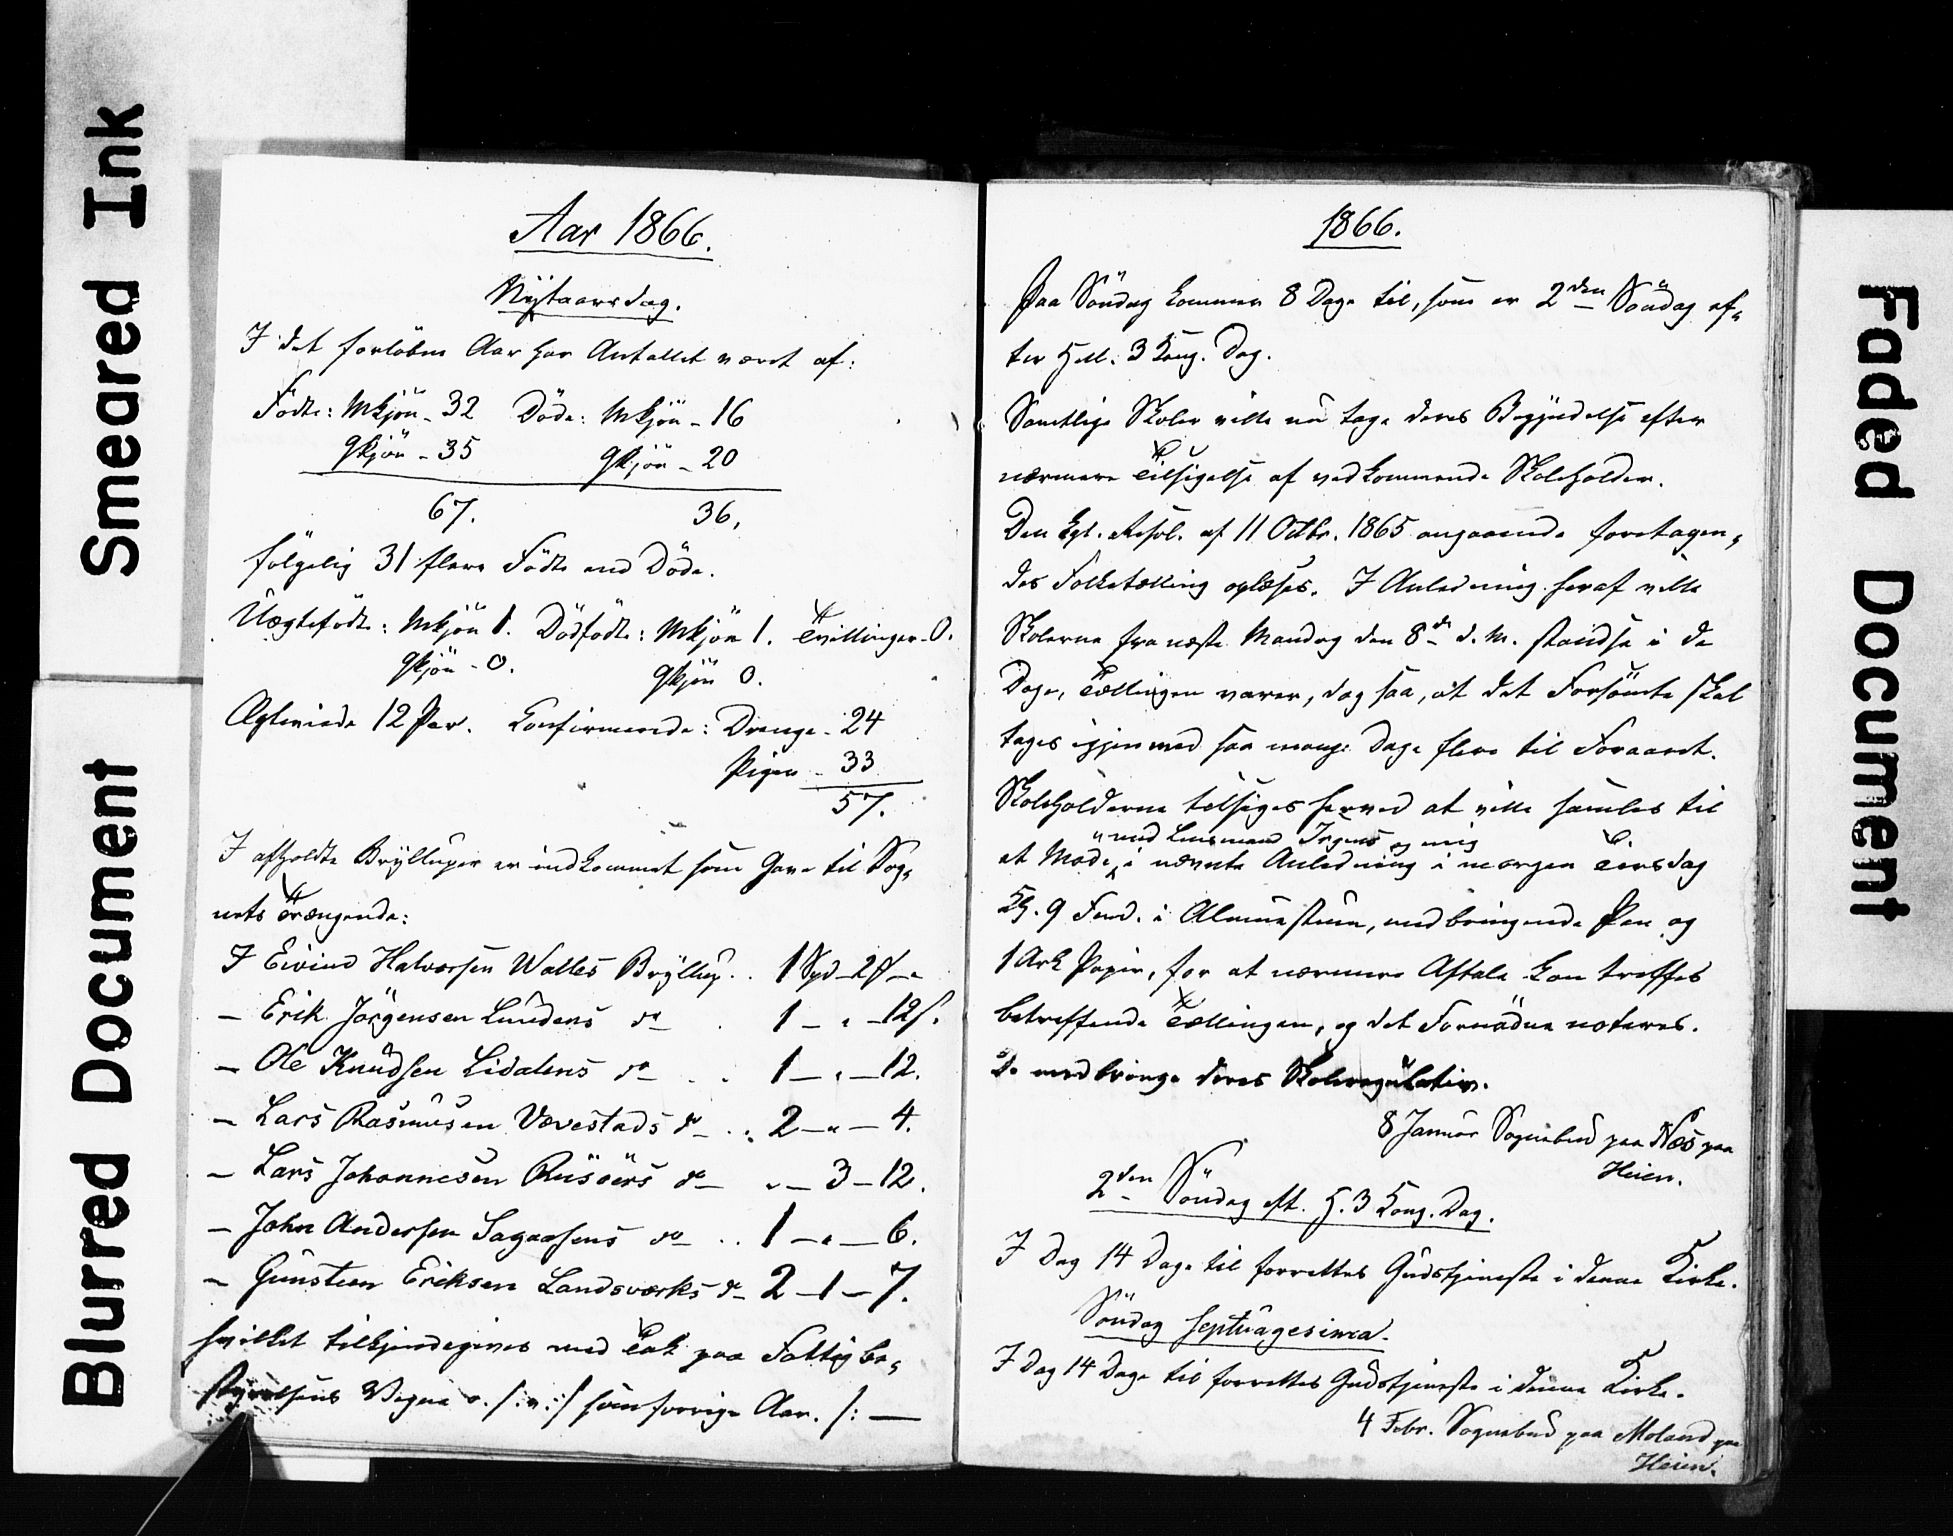 Smeared Ink
Blurred Document
Faded Document
Aar 1866.
Nÿtaarsdag.
I det forløbne Aar har Antallet været af:
Fødte: Mkjön - 32 Døde: Mkjön - 16
Qkjön - 35 Qkjön - 20
67. 36.
følgelig 31 flere Födte end Döde.
Uægtefödte: Mkjön 1. Dödfödte: Mkjön 1. Tvillinger - 0.
Qkjön - 0. Qkjön 0.
Ægteviede 12 Par. Konfirmerede: Drenge - 24
Piger - 33
57.
I afholdte Brÿlluper er indkommet som Gave til Sog-
nets Trængende:
I Eivind Halvorsen Walles Brÿllup . . 1 Spd - 2 # - "
- Erik Jörgensen Lundens do . 1 - " - 12 s.
- Ole Knudsen Lidalens do . . 1 - " - 12.
- Lars Rasmusen Vævestads do . . 2 - " - 4.
- Lars Johannesen Rüsöens do " - 3 - 12.
- John Andersen Sagaasens do . . 1 - " - 6.
- Gunsten Eriksen Landsværks do 2 - 1 - 7.
hvilket tilkjendegives med Tak paa Fattigbe-
styrelsens Vegne o. s: v: /: som forrige Aar. /: —
1866.
Paa Söndag kommer 8 Dage til, som er 2den Söndag ef-
ter Hell. 3 Kong. Dag.
Samtlige Skoler ville nu tage deres Begyndelse efter
nærmere Tilsigelse af vedkommende Skoleholder.
Den Kgl. Resol. af 11 Octbr. 1865 angaaende foretagen-
des Folketælling oplæses. I Anledning heraf ville
Skolerne fra næste Mandag den 8de d. M. standse i de
Dage, Tællingen varer, dog saa, at det Forsömte skal
tages igjen med saa mange Dage flere til Foraaret.
Skoleholderne tilsiges herved at ville samles til
" med Lensmand Irgens og mig
et Möde i nævnte Anledning i morgen Tirsdag
Kl. 9 Form. i Almuestuen, medbringende Pen og
1 Ark Papir, for at nærmere Aftale kan træffes
betreffende Tællingen, og det Fornödne noteres.
De medbringe deres Skoleregulativ.
8 Januar Sognebud paa Næs paa
Heien.
2den Söndag eft. H. 3 Kong. Dag.
I Dag 14 Dage til forrettes Gudstjeneste i denne Kirke.
Söndag Septuagesima.
I Dag 14 Dage til forrettes Gudstjeneste i denne Kirke.
4 Febr. Sognebud paa Moland paa
Heien.